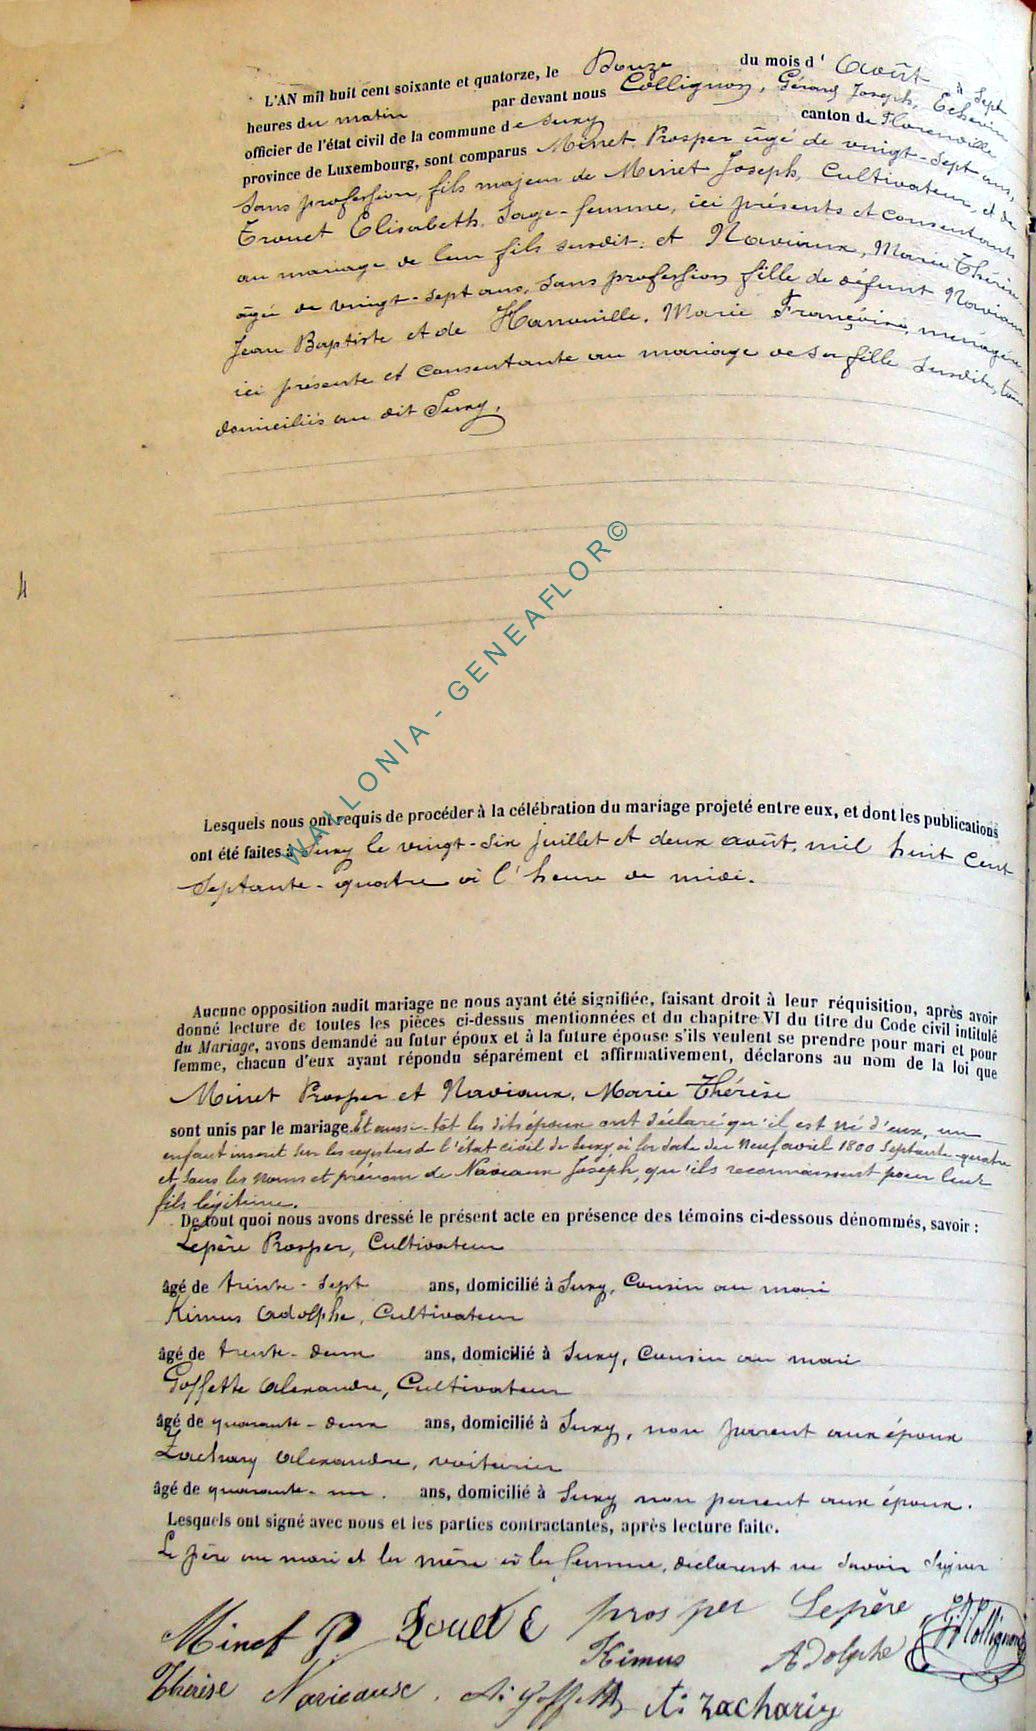 L'AN mil huit cent soixante et quatorze, le Douze du mois d'Août à Sept
heures du matin par devant nous Collignon, Gérard Joseph, Echevin
officier de l'état civil de la commune de Suxy canton de Florenville
province de Luxembourg, sont comparus Minet Prosper âgé de vingt-sept ans,
Sans profession, fils majeur de Minet Joseph, Cultivateur, et de
Elisabeth, Sage-femme, ici présents et consentants
au mariage de leur fils susdit; et Naviaux, Marie Thérèse,
âgée de vingt-sept ans, Sans profession fille de défunt Naviaux
Jean Baptiste et de Marie Françoise, ménagère,
ici présente et consentante au mariage de sa fille susdite, tous
domiciliés au dit Suxy.
4
WALLONIA - GENEAFLOR©
Lesquels nous ont requis de procéder à la célébration du mariage projeté entre eux, et dont les publications
ont été faites à Suxy le vingt-six juillet et deux août, mil huit cent
Septante-quatre à l'heure de midi.
Aucune opposition audit mariage ne nous ayant été signifiée, faisant droit à leur réquisition, après avoir
donné lecture de toutes les pièces ci-dessus mentionnées et du chapitre VI du titre du Code civil intitulé
du Mariage, avons demandé au futur époux et à la future épouse s'ils veulent se prendre pour mari et pour
femme, chacun d'eux ayant répondu séparément et affirmativement, déclarons au nom de la loi que
Minet Prosper et Naviaux, Marie Thérèse
sont unis par le mariage. Et aussi-tôt les dits époux ont déclaré qu'il est né d'eux, un
enfant inscrit sur les registres de l'état civil de Suxy, à la date du Neuf avril 1800 Septante-quatre
et sous les noms et prénom de Naviaux Joseph, qu'ils reconnaissent pour leur
fils légitime.
De tout quoi nous avons dressé le présent acte en présence des témoins ci-dessous dénommés, savoir :
Lepère Prosper, Cultivateur
âgé de trente-sept ans, domicilié à Suxy, Cousin au mari
Kimus Adolphe, Cultivateur
âgé de trente-deux ans, domicilié à Suxy, Cousin au mari
Goffette Alexandre, Cultivateur
âgé de quarante-deux ans, domicilié à Suxy, non parent aux époux
Zachary Alexandre, voiturier
âgé de quarante-un. ans, domicilié à Suxy non parent aux époux.
Lesquels ont signé avec nous et les parties contractantes, après lecture faite.
Le père du mari et la mère de la femme, déclarent ne savoir signer
Minet P E prosper Lepère Collignon
Kimus Adolphe
Thérèse A. Goffette A. Zachariy